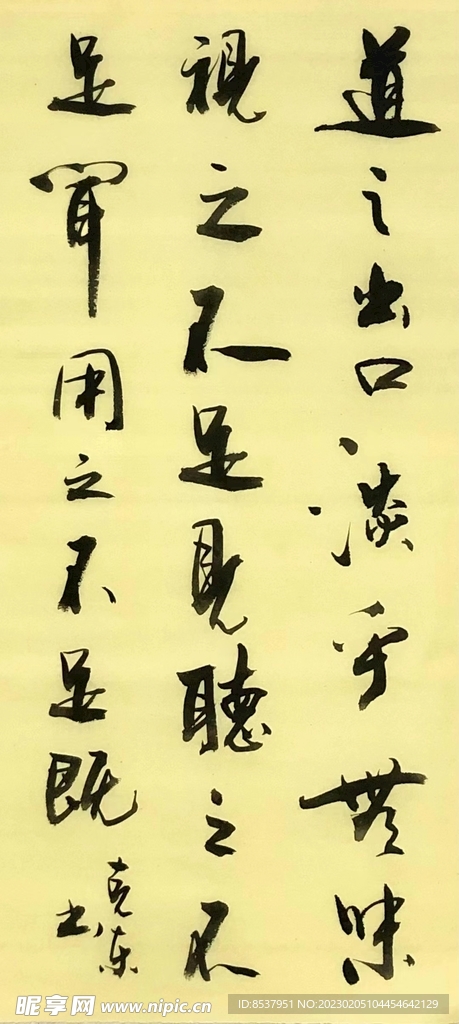 道之出口淡乎无味
視之不足見聽之不
足聞用之不足既
克东书
昵享网 www.nipic.cn
ID:8537951 NO:20230205104454642129